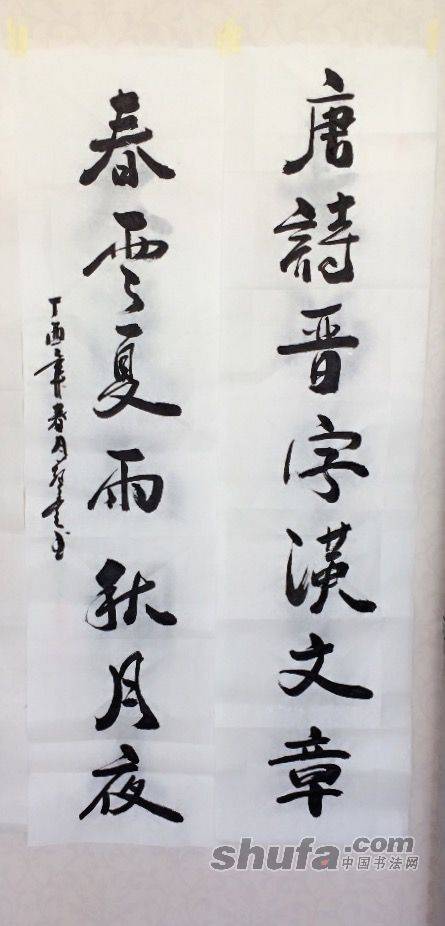 唐詩晋字漢文章
春雲夏雨秋月夜
丁酉年春月
书
shufa.com
中国书法网